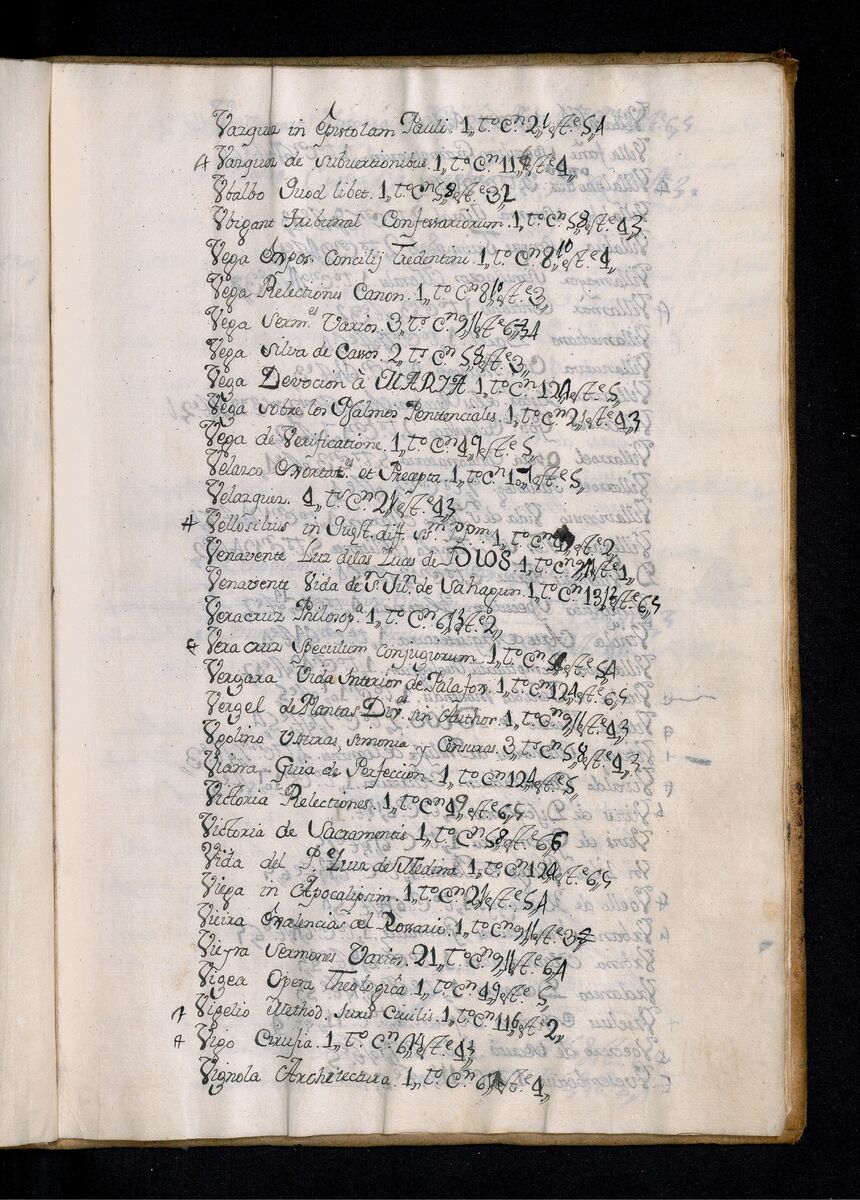 Vazquez in Epistolam Pauli. 1,, to. Cn. 2,, est.e 5,,
Vazquez de Subventionibus. 1,, to. Cn 11,, est.e 4,,
Vbalbo Quod libet. 1,, to. Cn 5,, est.e 3,,
Vbigant Tribunal Confessariorum. 1,, to. Cn. 5,, est.e 4,,
Vega Expos. Concilij Tredentini. 1,, to. Cn 8,, est.e 4,,
Vega Relectiones Canon. 1,, to. Cn 8,, est.e 3,,
Vega Serm.es Varios. 3,, to. Cn 9,, est.e 6,,
Vega Silva de Casos. 2,, to. Cn 5,, est.e 3,,
Vega Devocion à MARIA. 1,, to. Cn 12,, est.e 5,,
Vega sobre los Psalmos Penitenciales. 1,, to. Cn 2,, est.e 4,,
Vega de Verificatione. 1,, to. Cn 4,, est.e 5,,
Velazco et Precepta. 1,, to. Cn est.e 5,,
Velazquez. 4,, to. Cn 2,, est.e 4,,
Vellosilius in Quęst. diff. 1,, to. Cn est.e 2,,
Venavente Luz delas Luces de DIOS. 1,, to. Cn est.e 1,,
Venavente Vida de Sn Jun. de Sahagun. 1,, to. Cn 13,, est.e 6,,
Veracruz Philosop.a 1,, to. Cn 6,, est.e 2,,
Veracruz Speculum Conjugiorum. 1,, to. Cn est.e 5,,
Vergara Vida Interior de Palafox. 1,, to. Cn 12,, est.e 6,,
Vergel de Plantas sin Author. 1,, to. Cn 9,, est.e 4,,
Vgolino Vsuras, Simonia y Censuras. 3,, to. Cn 5,, est.e 4,,
Viana Guia de Perfeccion. 1,, to. Cn 12,, est.e 5,,
Victoria Relectiones. 1,, to. Cn 4,, est.e 6,,
Victoria de Sacramentis. 1,, to. Cn 5,, est.e 6,,
Vida del P.e Luis de Medina. 1,, to. Cn 12,, est.e 6,,
Viega in Apocalipsim. 1,, to. Cn 2,, est.e 5,,
Vieira Exselencias del Rossario. 1,, to. Cn 9,, est.e 3,,
Vieyra Sermones Varios. 21,, to. Cn 9,, est.e 6,,
Vigea Opera Theologica. 1,, to. Cn 4,, est.e 5,,
Vigelio Method. Juris Civilis. 1,, to. Cn 11,, est.e 2,,
Vigo Cirujia. 1,, to. Cn 6,, est.e 4,,
Vignola Architectura. 1,, to. Cn 6,, est.e 4,,